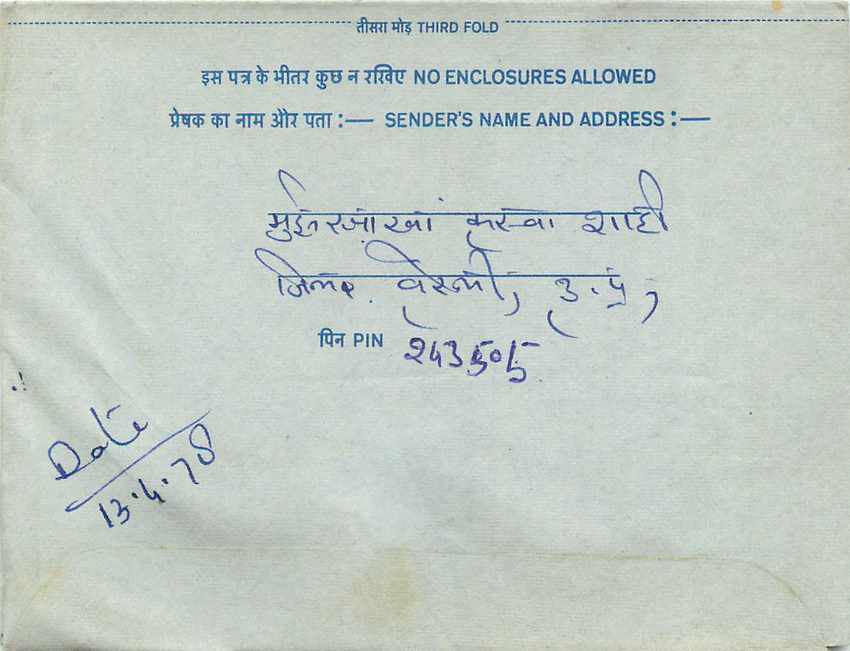 तीसरा मोड़ THIRD FOLD
इस पत्र के भीतर कुछ न रखिए NO ENCLOSURES ALLOWED
प्रेषक का नाम और पता :— SENDER'S NAME AND ADDRESS :—
खां कस्वा शाही
जिला वरेली, उ.प्र,
पिन PIN 243505
Date
13.4.78